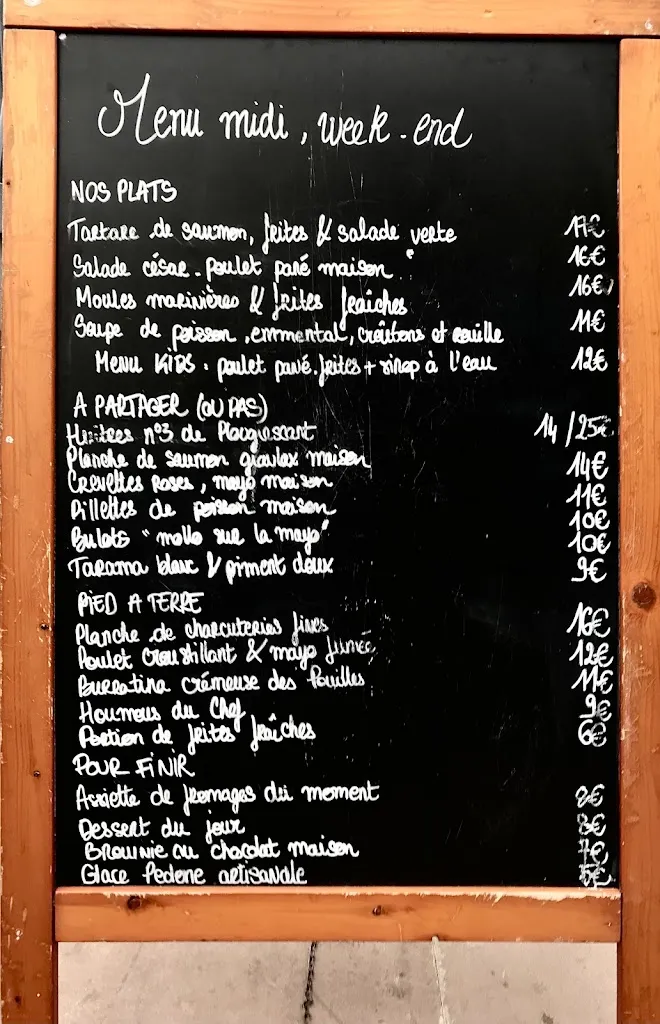 Menu midi, week-end
NOS PLATS
Tartare de saumon, frites & salade verte 17€
Salade césar. poulet pané maison 16€
Moules marinières & frites fraîches 16€
Soupe de poisson, emmental, croûtons et rouille 11€
Menu KIDS: poulet pané. frites + sirop à l'eau 12€
A PARTAGER (OU PAS)
Huitres n°3 de Plougastant 14/25€
Planche de saumon gravlax maison 14€
Crevettes roses, mayo maison 11€
Rillettes de poisson maison 10€
Bulots "mollo sur la mayo" 10€
Tarama blanc & piment doux 9€
PIED A TERRE
Planche de charcuteries fines 16€
Poulet croustillant & mayo fumée 12€
Burratina crémeuse des Pouilles 11€
Houmous du Chef 9€
Portion de frites fraîches 6€
POUR FINIR
Assiette de fromages du moment 8€
Dessert du jour 8€
Brownie au chocolat maison 7€
Glace Pedone artisanale 5€